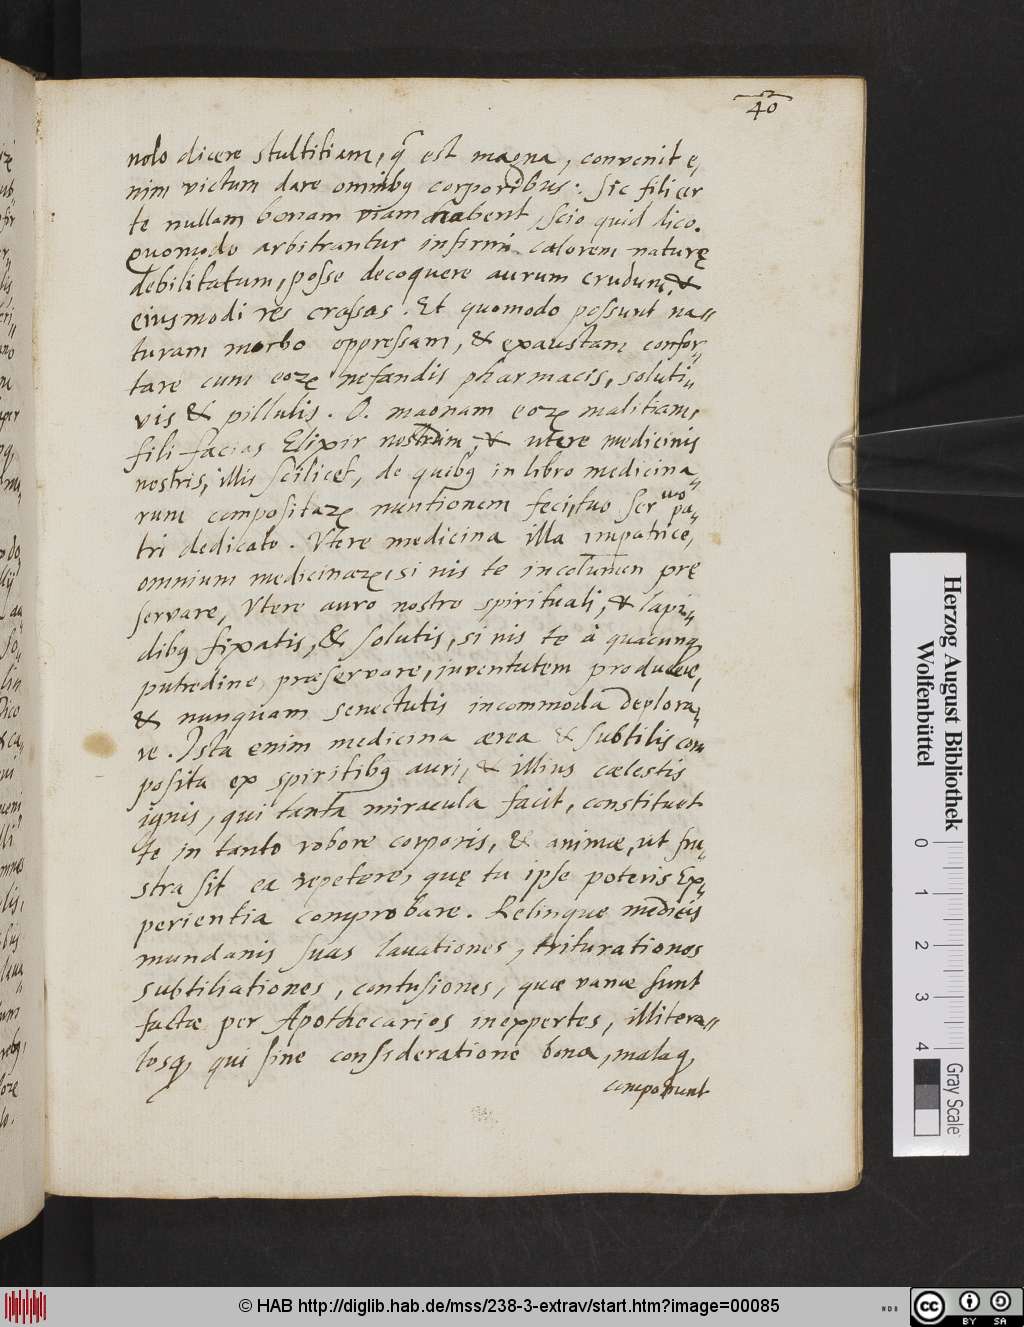 40
nolo dicere stultitiam, q̃ est magna, convenit e,
nim victum dare omnibꝰ corporibus: Sic fili cer
te nullam bonam viam habent, scio quid dico.
Quomodo arbitrantur infirmi calorem naturę
debilitatum, posse decoquere aurum crudum, &
eiusmodi res crassas. Et quomodo possunt na„
turam morbo oppressam, & exaustam confor„
tare cum eoꝝ nefandis pharmacis, soluti„
vis & pillulis. O. magnam eoꝝ malitiam,
fili facias Elixir nostrum, & utere medicinis
nostris, illis scilicet, de quibꝰ in libro medicina„
rum compositaꝝ mentionem feci, tuo servo pa„
tri dedicato. Vtere medicina illa impatrice,
omnium medicinaꝝ, si vis te incolumen prę
servare, Vtere auro nostro spirituali, & lapi„
dibꝰ fixatis, & solutis, si vis te à quacunqꝫ
putredine præservare, iuventutem producere,
& nunquam senectutis incommoda deplora„
re. Ista enim medicina aerea & subtilis com
posita ex spiritibꝰ auri, & illius cælestis
ignis, qui tanta miracula facit, constituet
te in tanto robore corporis, & animæ, ut fru„
stra sit ea repetere, quę tu ipse poteris Ex„
perientia comprobare. Relinque medicis
mundanis suas lavationes, triturationes
subtiliationes, contusiones, quæ vanæ sunt
factæ per Apothecarios inexpertes, illitera„
tosqꝫ qui sine consideratione bona, malaqꝫ
componunt
Herzog August Bibliothek
Wolfenbüttel
0 1 2 3 4
Gray Scale
© HAB http://diglib.hab.de/mss/238-3-extrav/start.htm?image=00085
cc BY SA